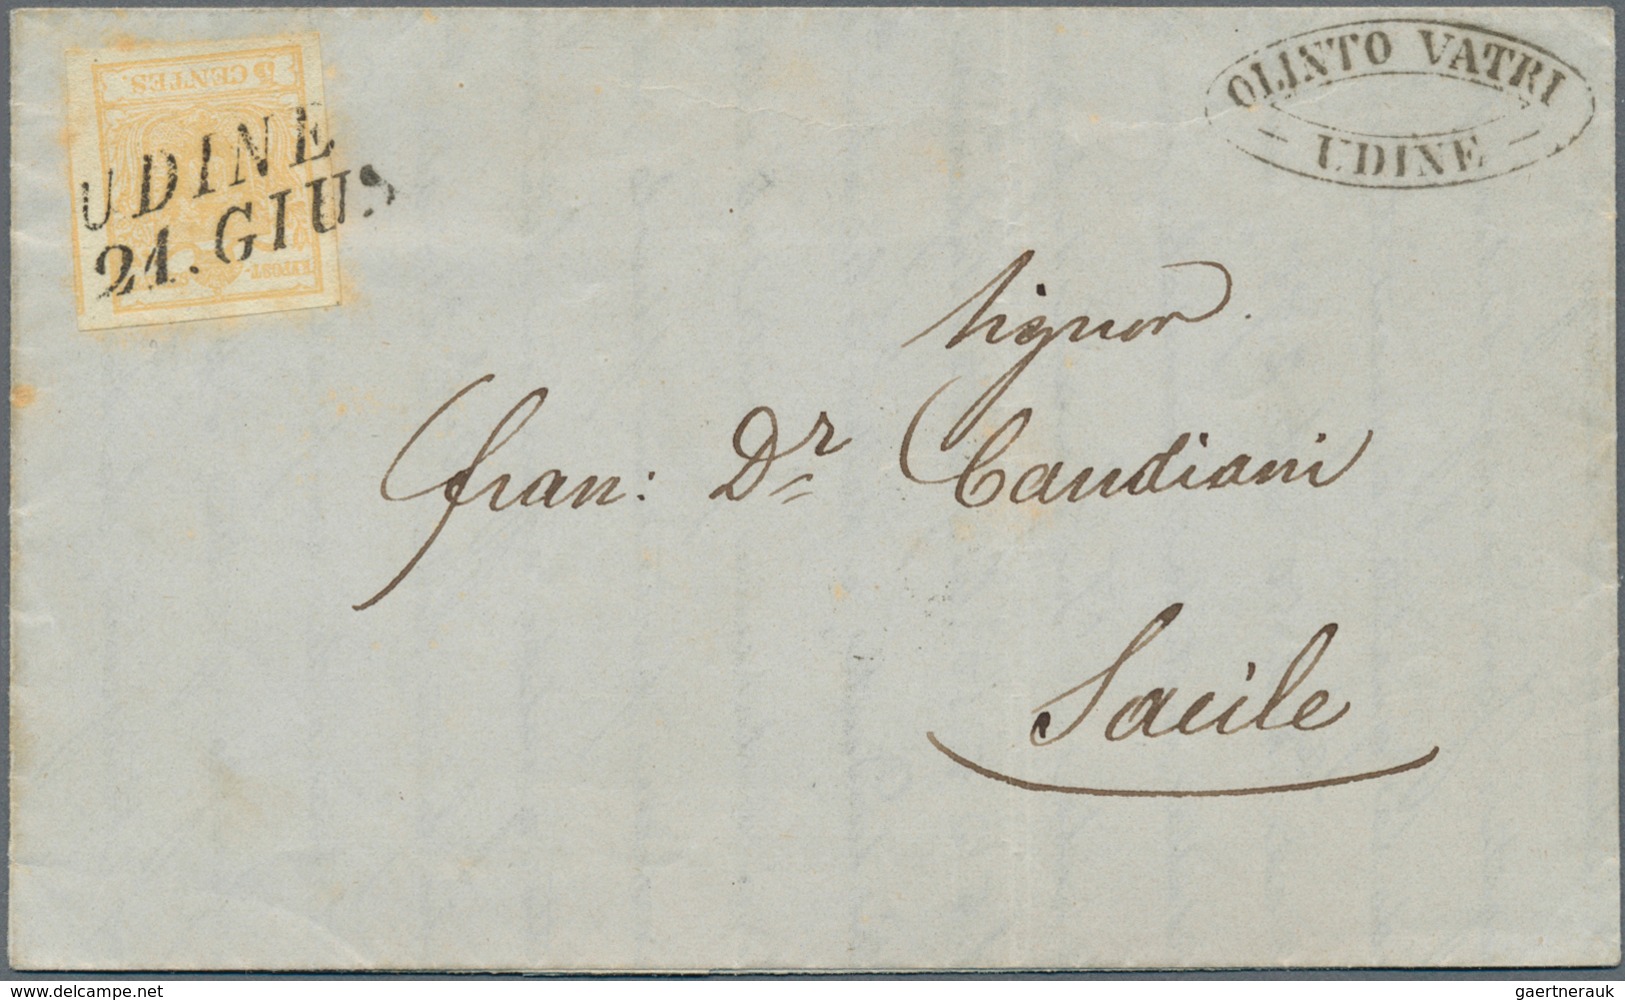 5 CENTES.
UDINE
21. GIUS
OLINTO VATRI
- UDINE -
Signor
fran: Dr Candiani
Sacile
www.delcampe.net
gaertnerauk